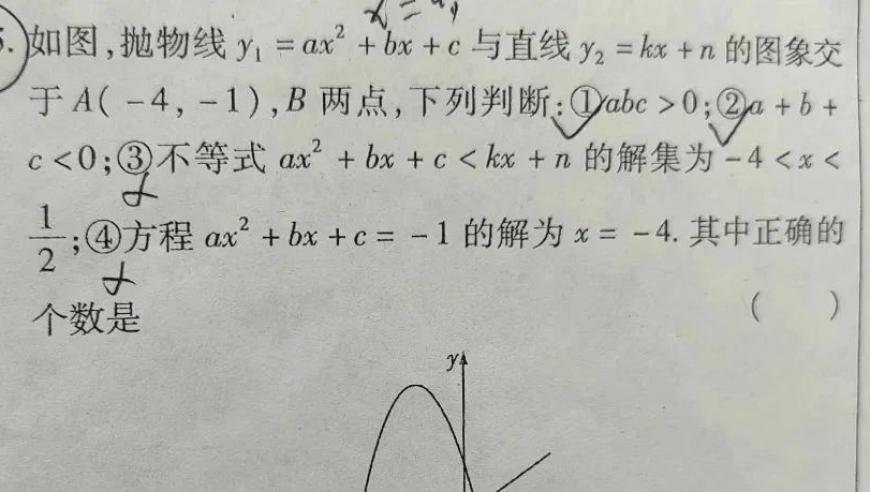 如图,抛物线 y₁ = ax² + bx + c 与直线 y₂ = kx + n 的图象交
于 A( -4, -1),B 两点,下列判断:①abc > 0;②a + b +
c < 0;③不等式 ax² + bx + c < kx + n 的解集为 -4 < x <
1/2;④方程 ax² + bx + c = -1 的解为 x = -4. 其中正确的
个数是 ( )
y